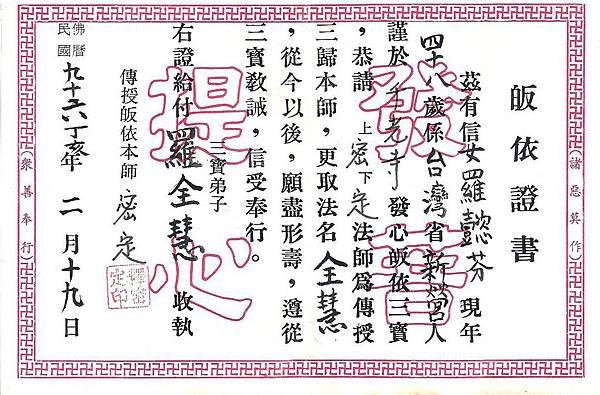 皈依證書
(諸惡莫作)
茲有信女羅懿芬 現年
四十八歲係台灣省新營人
謹於千光寺發心皈依三寶
，恭請上密下定法師爲傳授
三歸本師，更取法名全慧
，從今以後，願盡形壽，遵從
三寶敎誡，信受奉行。
三寶弟子
右證給付羅全慧 收執
傳授皈依本師 密定
釋密定印
佛曆
民國
九十六丁亥年 二月十九日
(衆善奉行)
發菩提心